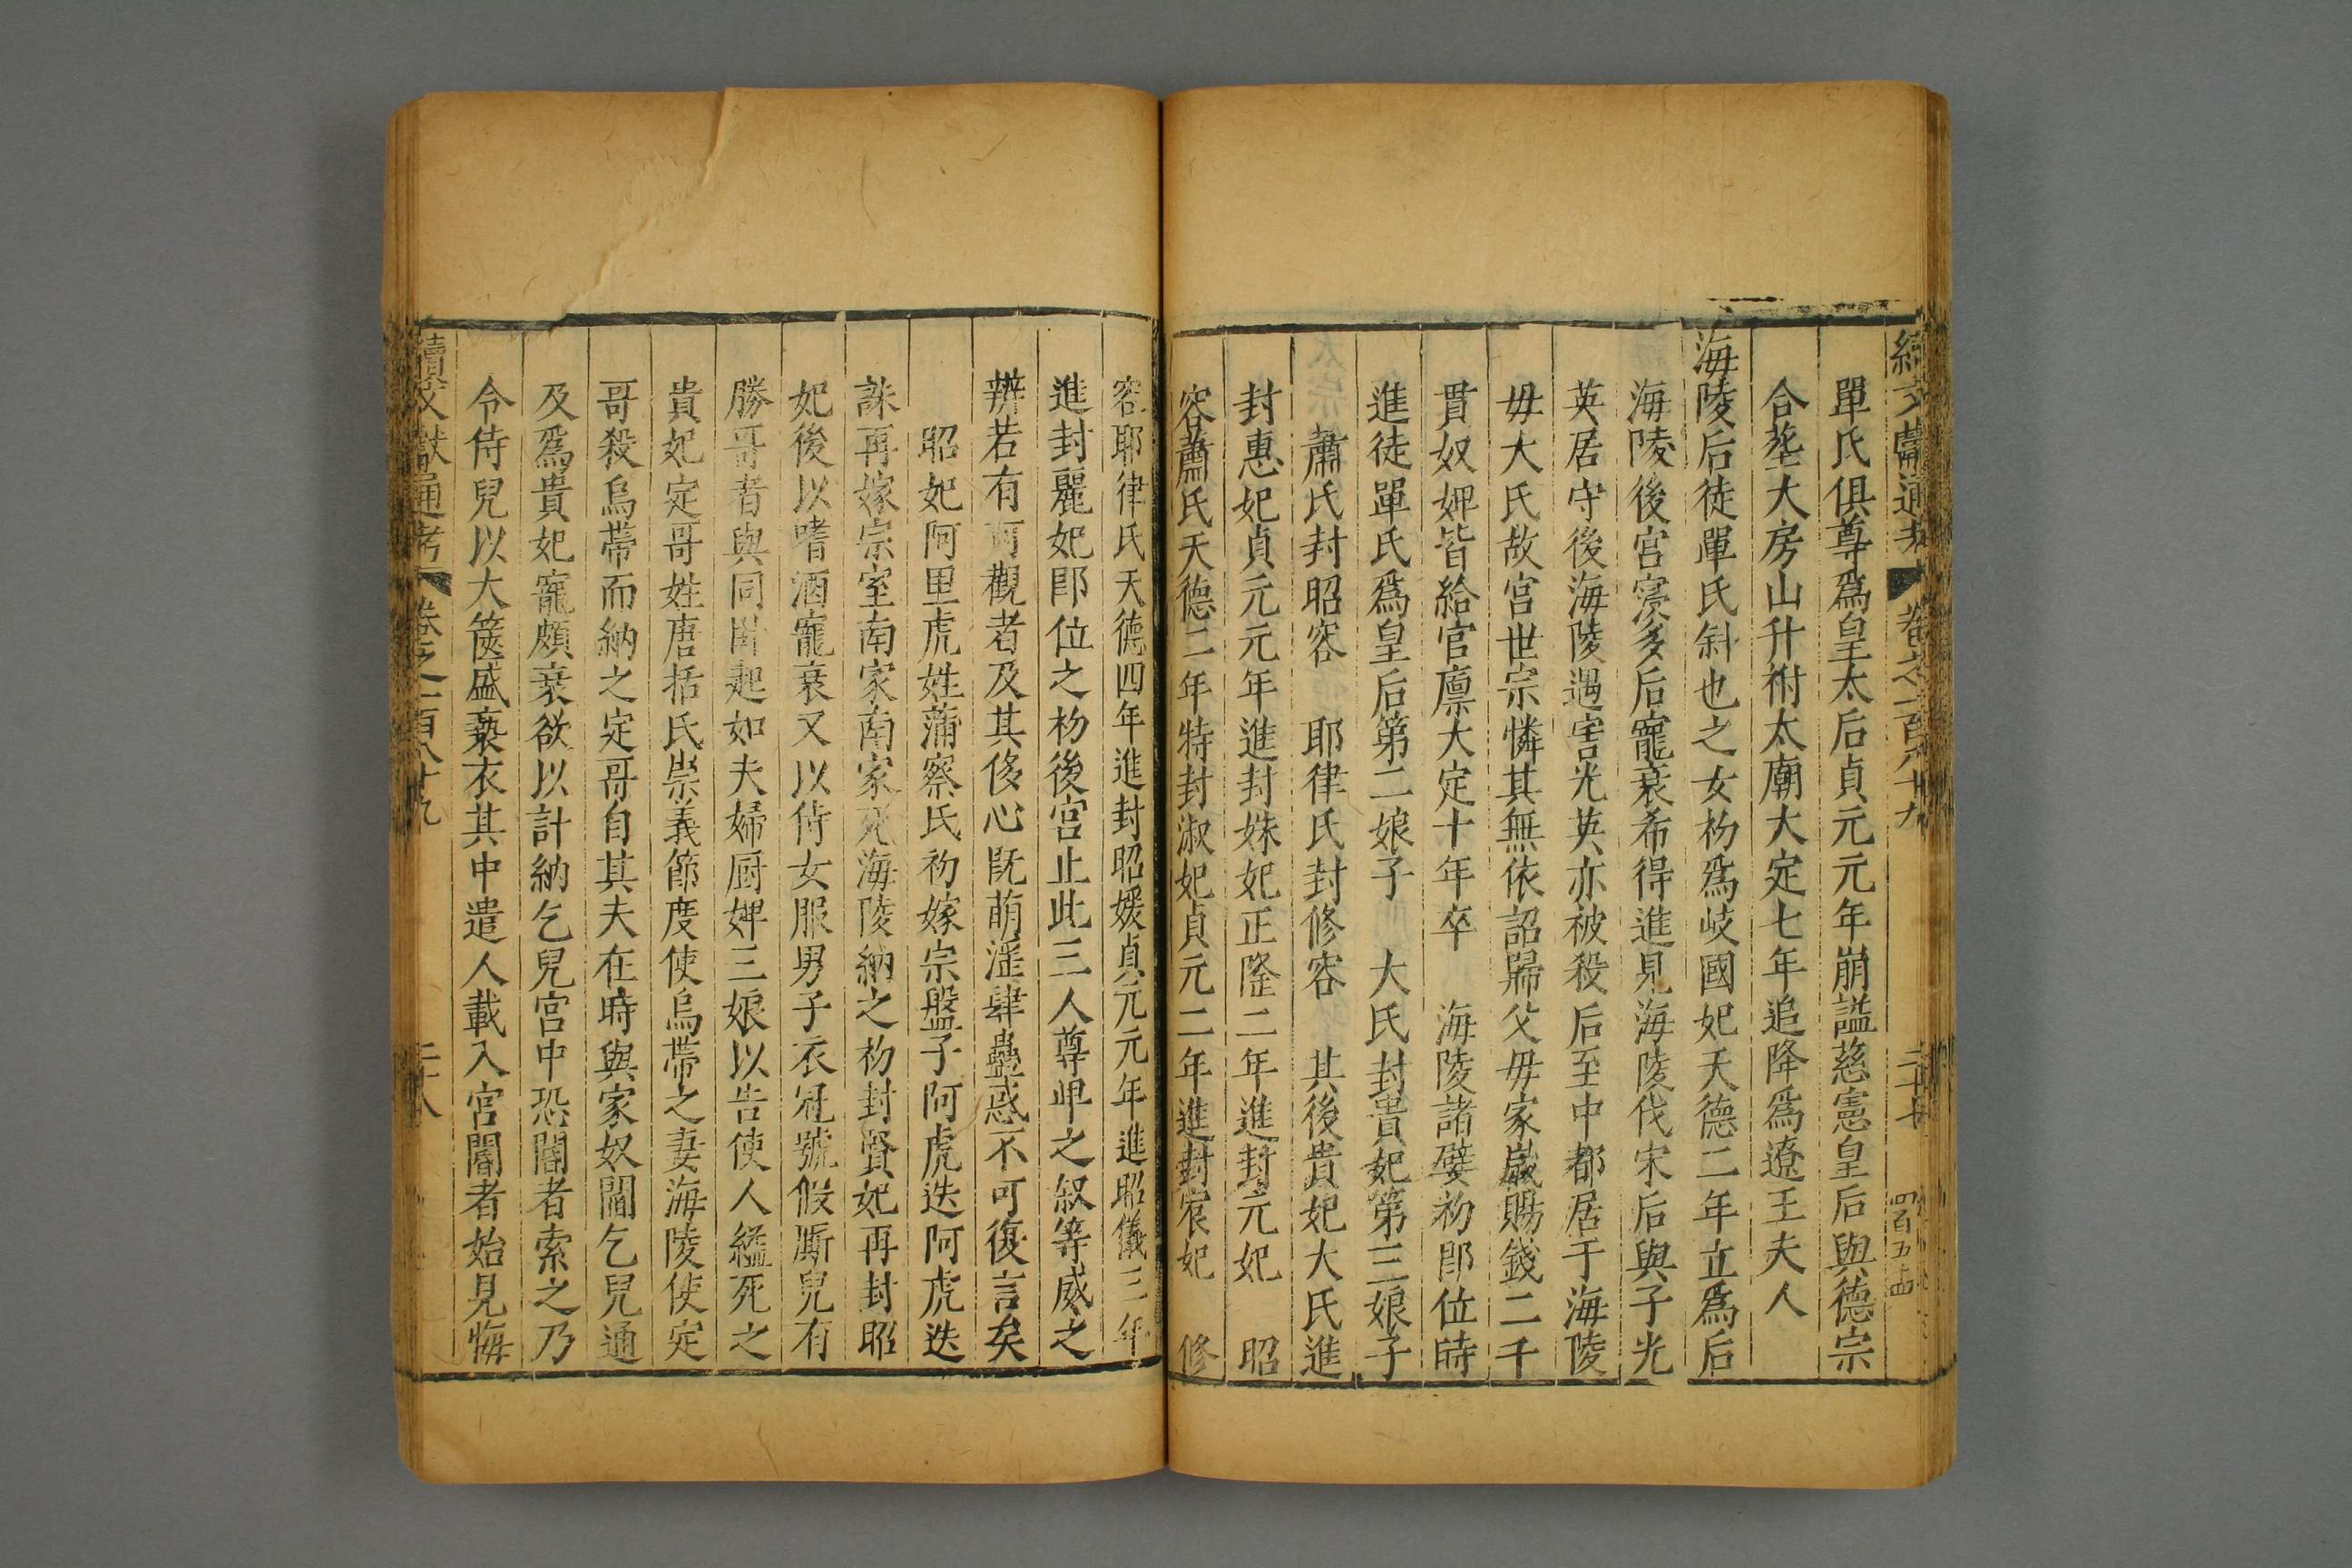 續文獻通考 卷之一百八十九 二十七 四百五十四
單氏俱尊爲皇太后貞元元年崩謚慈憲皇后與德宗
合塟大房山升祔太廟大定七年追降爲遼王夫人
海陵后徒單氏斜也之女初爲岐國妃天德二年立爲后
海陵後宮寖多后寵衰希得進見海陵伐宋后與子光
英居守後海陵遇害光英亦被殺后至中都居于海陵
母大氏故宮世宗憐其無依詔歸父母家歲賜錢二千
貫奴婢皆給官廪大定十年卒 海陵諸嬖初即位時
進徒單氏爲皇后第二娘子 大氏封貴妃第三娘子
蕭氏封昭容 耶律氏封修容 其後貴妃大氏進
封惠妃貞元元年進封姝妃正隆二年進封元妃 昭
容蕭氏天德二年特封淑妃貞元二年進封宸妃 修
容耶律氏天德四年進封昭媛貞元元年進昭儀三年
進封麗妃即位之初後宮止此三人尊卑之叙等威之
辨若有可觀者及其侈心旣萌淫肆蠱惑不可復言矣
昭妃阿里虎姓蒲察氏初嫁宗盤子阿虎迭阿虎迭
誅再嫁宗室南家南家死海陵納之初封賢妃再封昭
妃後以嗜酒寵衰又以侍女服男子衣冠號假厮兒有
勝哥者與同卧起如夫婦厨婢三娘以告使人縊死之
貴妃定哥姓唐括氏崇義節度使烏帶之妻海陵使定
哥殺烏帶而納之定哥自其夫在時與家奴閻乞兒通
及爲貴妃寵頗衰欲以計納乞兒宮中恐閽者索之乃
令侍兒以大篋盛褻衣其中遣人載入宮閽者始見悔
續文獻通考 卷之一百八十九 二十八